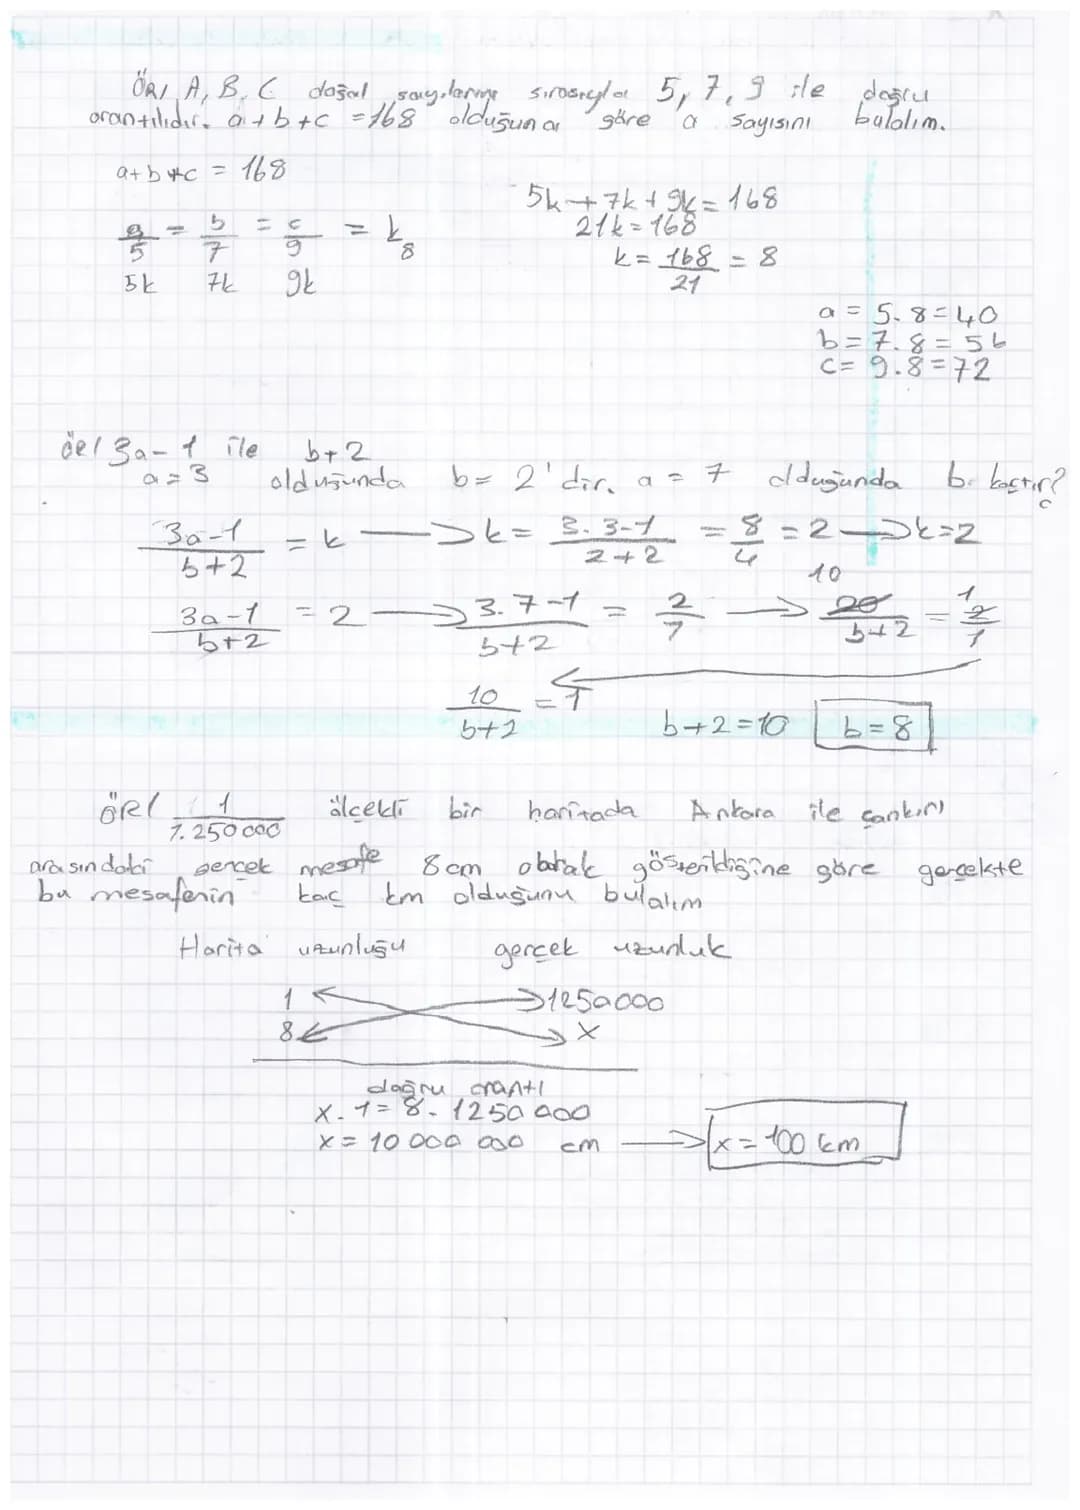 ÖR/ A, B, C doğal sayılarına sırasıyla 5, 7, 9 ile doğru
orantılıdır. a+b+c =168 olduğuna göre a sayısını bulalım.
a+b+c = 168
a/5 = b/7 = c/9 = k 8
5k 7k 9k
5k+7k+9k=168
21k=168
k= 168/21 = 8
a = 5.8=40
b=7.8=56
c= 9.8=72
ÖR/ 3a-1 ile b+2
a=3 olduğunda b= 2'dir. a = 7 olduğunda b kaçtır?
3a-1/b+2 = k → k= 3.3-1/2+2 = 8/4 = 2 → k=2
3a-1/b+2 = 2 → 3.7-1/b+2 = 2/7 → 10 20/b+2 = 1 2/1
10/b+2 = 1
b+2=10 b=8
ÖR/ 1/1.250000 ölçekli bir haritada Ankara ile Çankırı
arasındaki gerçek mesafe 8cm olarak gösterildiğine göre gerçekte
bu mesafenin kaç km olduğunu bulalım
Harita uzunluğu gerçek uzunluk
1 1250000
8 x
doğru orantı
x.1= 8.1250 000
x= 10 000 000 cm → x=100 km